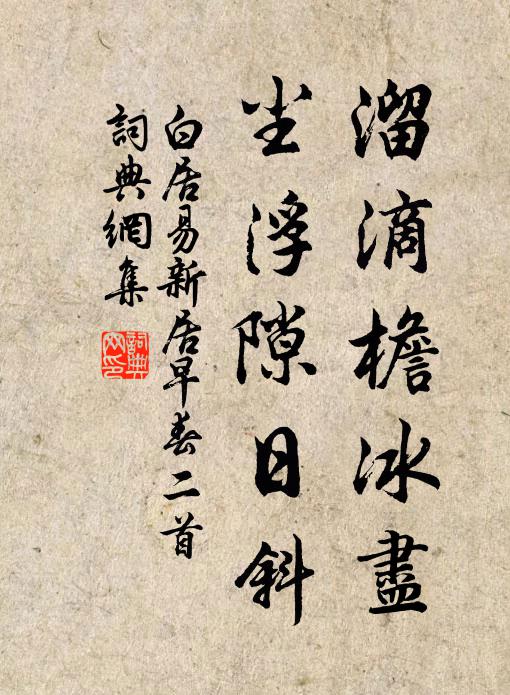 溜滴檐冰盡
尘浮隙日斜
白居易新居早春二首
詞典網集
詞典
网印